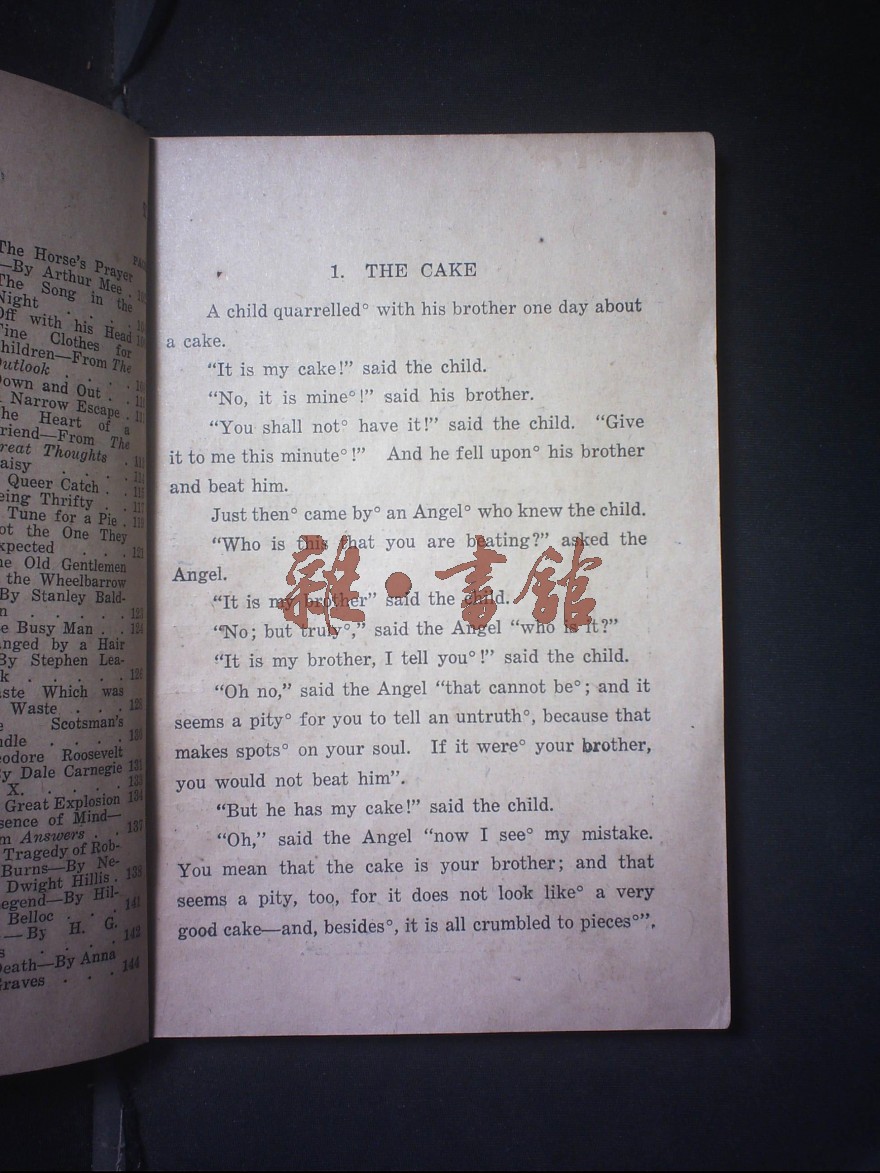 PAGE
The Horse's Prayer
—By Arthur Mee .
The Song in the
Night . . . .
Off with his Head
Fine Clothes for
Children—From The
Outlook . . . .
Down and Out . .
Narrow Escape .
The Heart of a
Friend—From The
Great Thoughts .
aisy . . . .
Queer Catch . .
eing Thrifty . .
Tune for a Pie .
ot the One They
xpected . . . 121
e Old Gentlemen
the Wheelbarrow
By Stanley Bald-
n . . . . . 123
e Busy Man . . 124
anged by a Hair
By Stephen Lea-
k . . . . . 126
aste Which was
Waste . . . 128
Scotsman's
ndle . . . . 130
eodore Roosevelt
By Dale Carnegie 131
X. . . . . 133
Great Explosion 134
sence of Mind—
m Answers . . 137
Tragedy of Rob-
Burns—By Ne-
Dwight Hillis . 138
egend—By Hil-
Belloc . . . 141
—By H. G.
s . . . . 142
Death—By Anna
Graves . . . 144
1. THE CAKE
A child quarrelled° with his brother one day about
a cake.
“It is my cake!” said the child.
“No, it is mine°!” said his brother.
“You shall not° have it!” said the child. “Give
it to me this minute°!” And he fell upon° his brother
and beat him.
Just then° came by° an Angel° who knew the child.
“Who is this that you are beating?” asked the
Angel.
“It is my brother” said the child.
“No; but truly°,” said the Angel “who is it?”
“It is my brother, I tell you°!” said the child.
“Oh no,” said the Angel “that cannot be°; and it
seems a pity° for you to tell an untruth°, because that
makes spots° on your soul. If it were° your brother,
you would not beat him”.
“But he has my cake!” said the child.
“Oh,” said the Angel “now I see° my mistake.
You mean that the cake is your brother; and that
seems a pity, too, for it does not look like° a very
good cake—and, besides°, it is all crumbled to pieces°”.
雜·書館